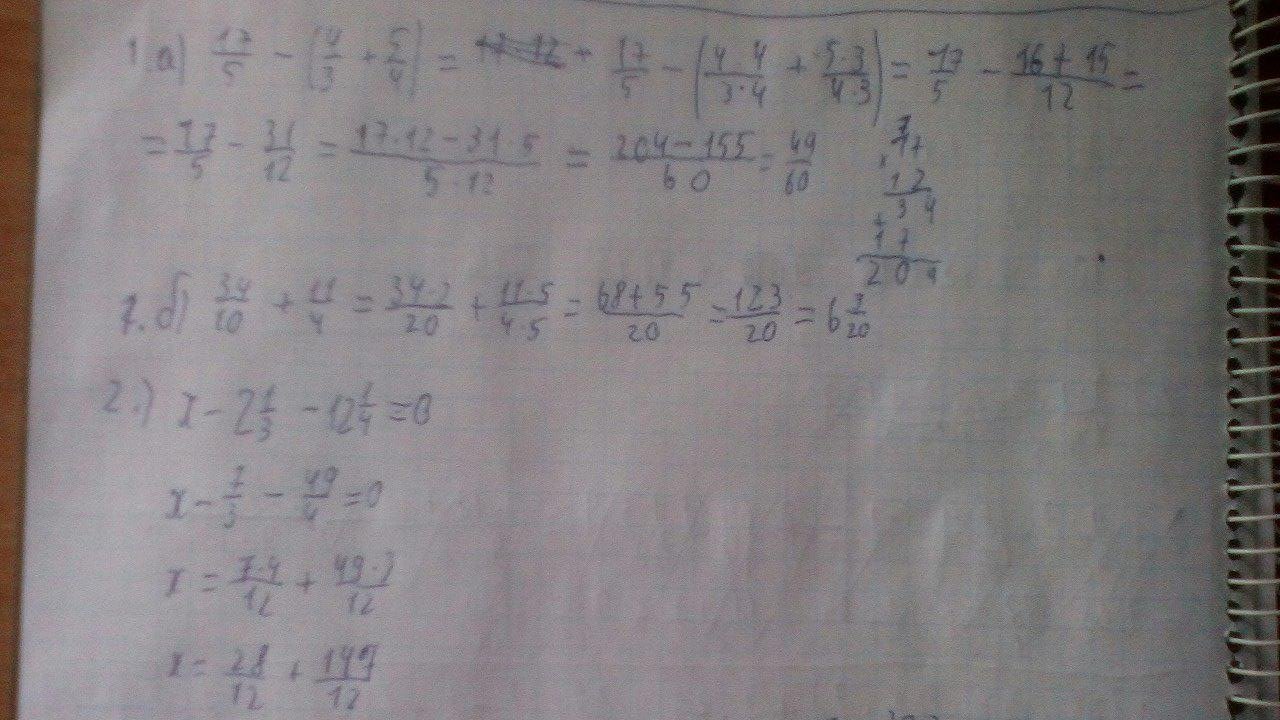 1. а) 17/5 − (4/3 + 5/4) = 17/5 − (4·4/3·4 + 5·3/4·3) = 17/5 − 16+15/12 =
= 17/5 − 31/12 = 17·12−31·5/5·12 = 204−155/60 = 49/60
17
12
+ 34
17
204
1. б) 34/10 + 11/4 = 34·2/20 + 11·5/4·5 = 68+55/20 = 123/20 = 6 3/20
2.) x − 2 1/3 − 12 1/4 = 0
x − 7/3 − 49/4 = 0
x = 7·4/12 + 49·3/12
x = 28/12 + 147/12